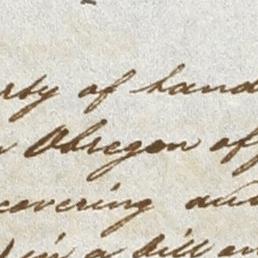 rty of hand
Obregon of
covering and
in a bill